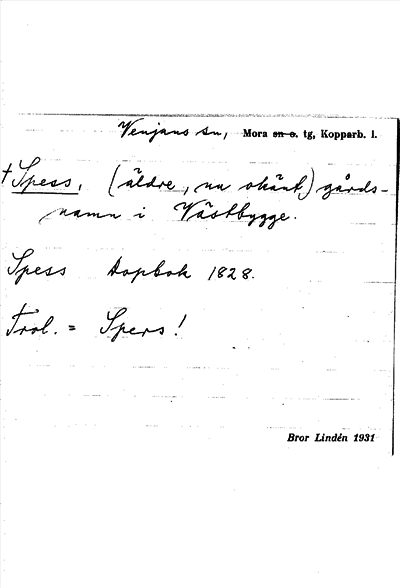 Venjans sn, Mora sn o. tg, Kopparb. l.
† Spess, (äldre, nu okänt) gårds-
namn i Västbygge.
Spess Dopbok 1828.
Trol. = Spers!
Bror Lindén 1931